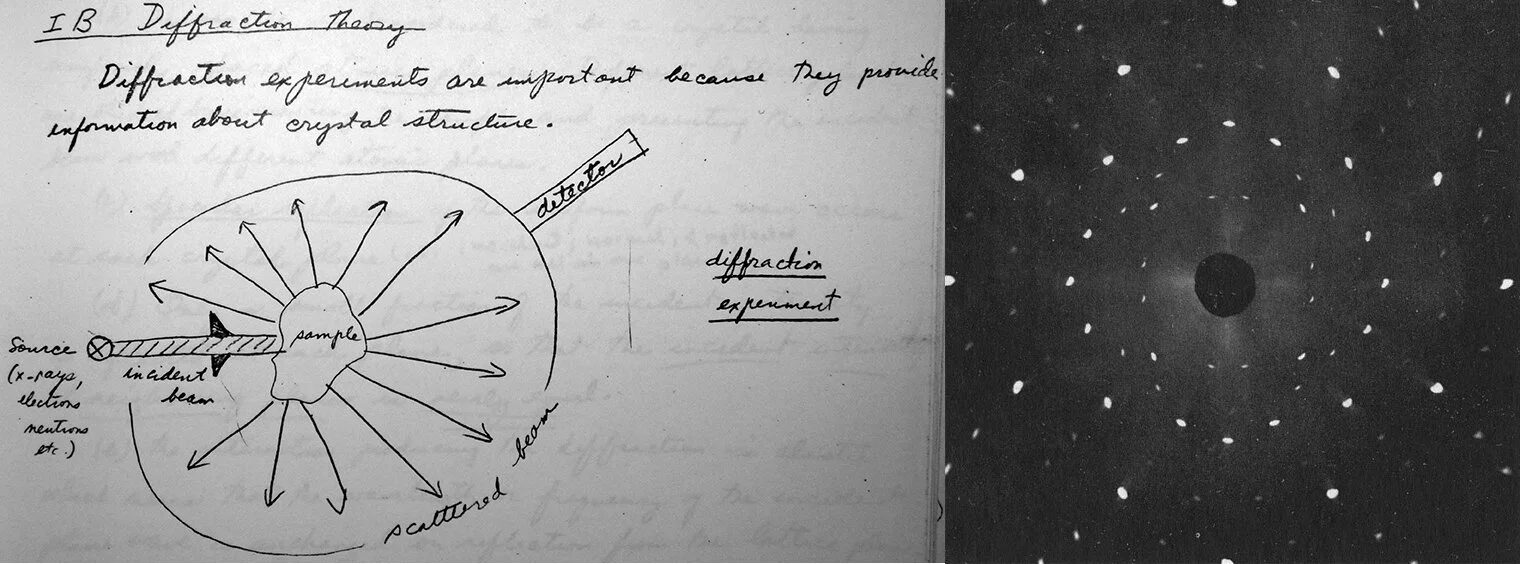 IB Diffraction Theory
Diffraction experiments are important because they provide
information about crystal structure.
detector
diffraction
experiment
sample
Source
(x-rays,
electrons
neutrons
etc.)
incident
beam
scattered beam